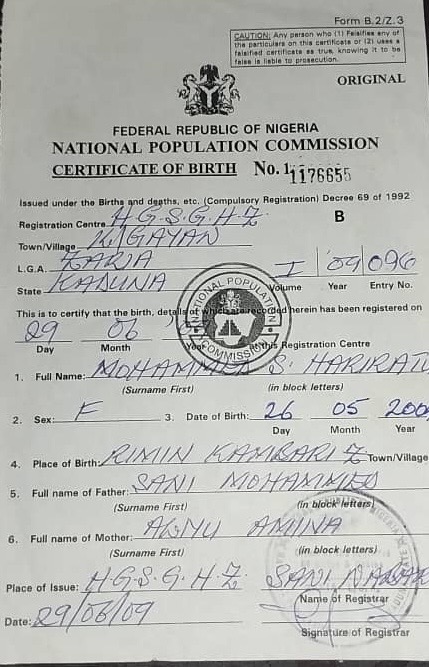 Form B.2/Z.3
CAUTION: Any person who (1) Falsifies any of
the particulars on this certificate or (2) uses a
falsified certificate as true, knowing it to be
false is liable to prosecution.
ORIGINAL
FEDERAL REPUBLIC OF NIGERIA
NATIONAL POPULATION COMMISSION
CERTIFICATE OF BIRTH No. 1176655
Issued under the Births and deaths, etc. (Compulsory Registration) Decree 69 of 1992
Registration Centre H.G.S.G.H.Z. B
Town/Village GAYAN
L.G.A. ZARIA I 09 096
State KADUNA Volume Year Entry No.
This is to certify that the birth, details of which are recorded herein has been registered on
29 06
Day Month Year At this Registration Centre
1. Full Name: MOHAMMED S. HARIRATU
(Surname First) (in block letters)
2. Sex: F 3. Date of Birth: 26 05
Day Month Year
4. Place of Birth: RIMIN KAMBARI Z Town/Village
5. Full name of Father: SANI MOHAMMED
(Surname First) (in block letters)
6. Full name of Mother: AMINA
(Surname First) (in block letters)
Place of Issue: H.G.S.G.H.Z. SANI
Name of Registrar
Date: 29/06/09
Signature of Registrar
NATIONAL POPULATION COMMISSION